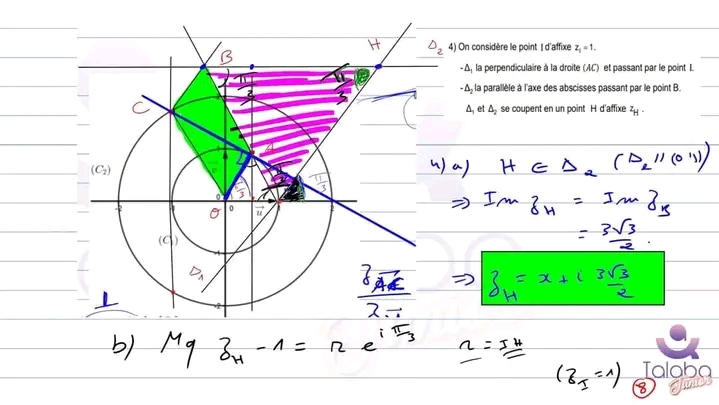 Δ₂ 4) On considère le point I d'affixe z_I = 1.
-Δ₁ la perpendiculaire à la droite (AC) et passant par le point I.
-Δ₂ la parallèle à l'axe des abscisses passant par le point B.
Δ₁ et Δ₂ se coupent en un point H d'affixe z_H .
B
H
C
π/3
π/3
A
π/3
π/3
(C₂)
(C₁)
O
0
u
-2
2
-1
-2
Δ₁
4) a) H ∈ Δ₂ (Δ₂ // (O u))
⇒ Im z_H = Im z_B
= 3√3/2
⇒ z_H = x + i 3√3/2
b) Mq z_H - 1 = r e^{i π/3} r = IH
(z_I = 1)
8
Talaba
Junior